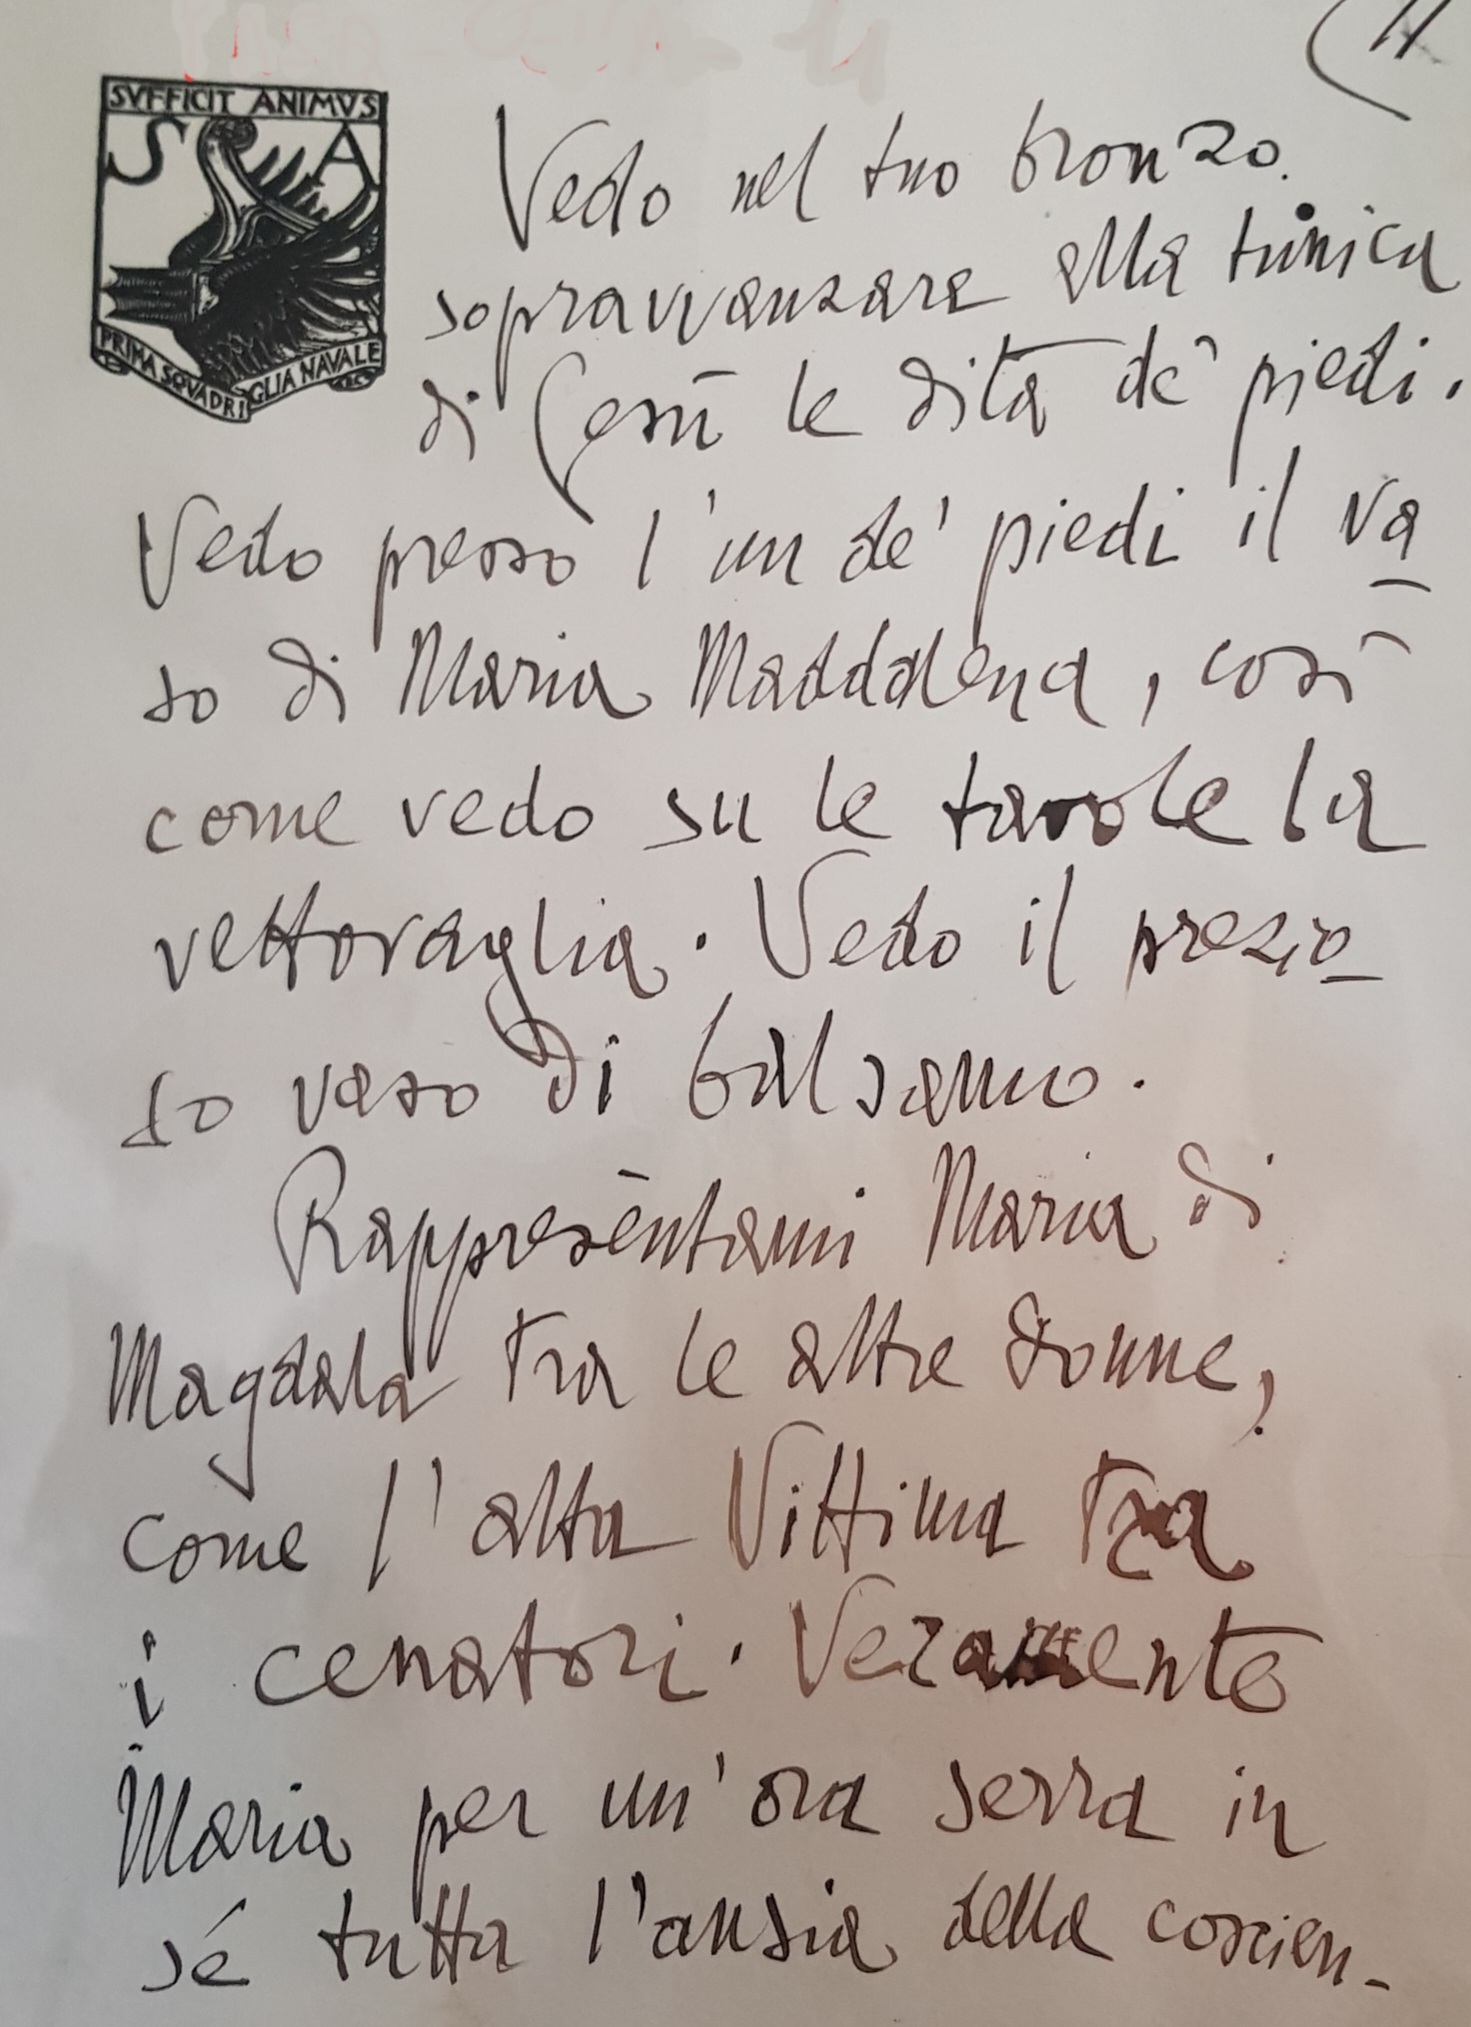 11
SVFFICIT ANIMVS
S A
PRIMA SQVADRIGLIA NAVALE
Vedo nel tuo bronzo.
sopravvanzare alla tunica
di Gesù le dita de' piedi.
Vedo presso l'un de' piedi il va
so di Maria Maddalena, così
come vedo su le tavole la
vettovaglia. Vedo il prezio_
so vaso di balsamo.
Rappresèntami Maria di
Magdala tra le altre donne,
come l'alta Vittima tra
i cenatori. Veramente
Maria per un'ora serra in
sé tutta l'ansia della coscien_